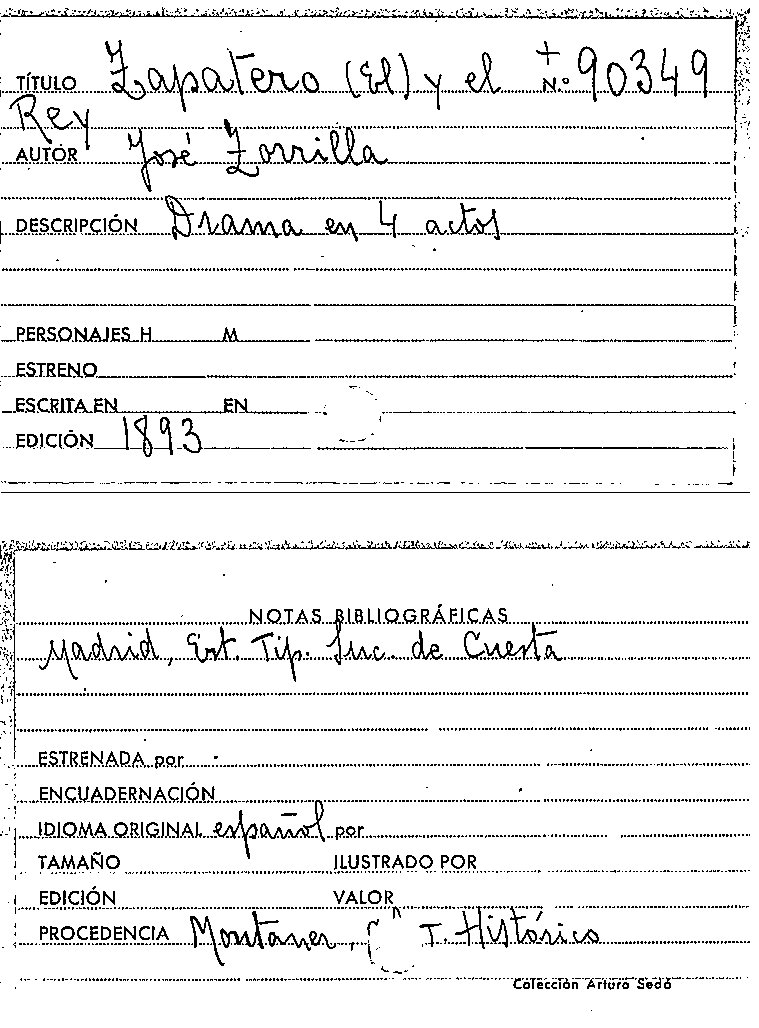 TÍTULO Zapatero (El) y el + N.º 90349
Rey
AUTOR José Zorrilla
DESCRIPCIÓN Drama en 4 actos
PERSONAJES H M
ESTRENO
ESCRITA EN EN
EDICIÓN 1893
NOTAS BIBLIOGRÁFICAS
Madrid, Est. Tip. Suc. de Cuesta
ESTRENADA por
ENCUADERNACIÓN
IDIOMA ORIGINAL español por
TAMAÑO ILUSTRADO POR
EDICIÓN VALOR
PROCEDENCIA Montaner, T. Histórico
Colección Arturo Sedó